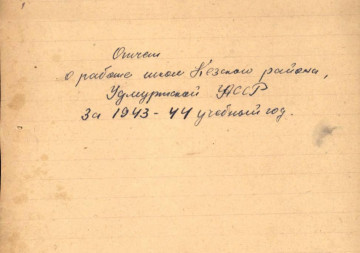 Отчет
о работе школ Кезского района,
Удмуртской АССР
За 1943-44 учебный год.